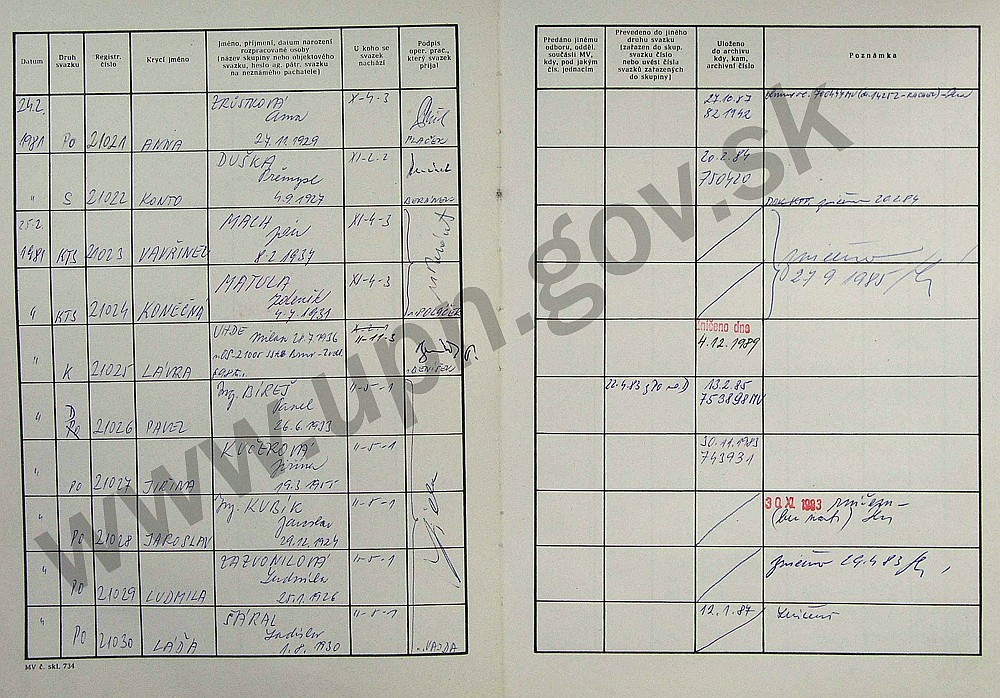 Datum
Druh svazku
Registr. číslo
Krycí jméno
Jméno, příjmení, datum narození rozpracované osoby (název skupiny nebo objektového svazku, heslo ag. pátr. svazku na neznámého pachatele)
U koho se svazek nachází
Podpis oper. prac., který svazek přijal
Předáno jinému odboru, odděl. součásti MV, kdy, pod jakým čís. jednacím
Převedeno do jiného druhu svazku (zařazen do skup. svazku číslo nebo uvést čísla svazků zařazených do skupiny)
Uloženo do archivu kdy, kam, archivní číslo
Poznámka
24.2. 1981 Po 21021 ANNA
ZRŮSTKOVÁ
Anna
27.11.1929
X-4-3
PLAČEK
27.10.87
821942
" S 21022 KONTO
DUŠKA
Přemysl
4.9.1927
XI-2-2
20.2.84
750420
25.2. 1981 KTS 21023 VAVŘINEC
MACH
Jan
8.2.1937
XI-4-3
zničeno
27 9 1985
" KTS 21024 KONEČNÁ
MATULA
Zdeněk
4.7.1931
XI-4-3
POLÁČEK
" K 21025 LAVRA
UHDE Milan 28.7.1936
II-11-3
Zničeno dne
4.12.1989
" D Po 21026 PAVEL
Ing. BÍREŠ
Pavel
26.6.1933
II-5-1
22.4.83
13.2.85
753898 MV
" Po 21027 JIŘINA
KUČEROVÁ
Jiřina
19.3.1955
II-5-1
30.11.1983
743931
" Po 21028 JAROSLAV
Ing. KUBÍK
Jaroslav
29.12.1924
II-5-1
30 XI. 1983
" Po 21029 LUDMILA
ZAZVONILOVÁ
Ludmila
25.1.1926
II-5-1
zničeno 29.4.83
" Po 21030 LÁĎA
ŠŤÁRAL
Ladislav
1.8.1930
II-5-1
VAJDA
12.1.87
MV č. skl. 734
www.upn.gov.sk